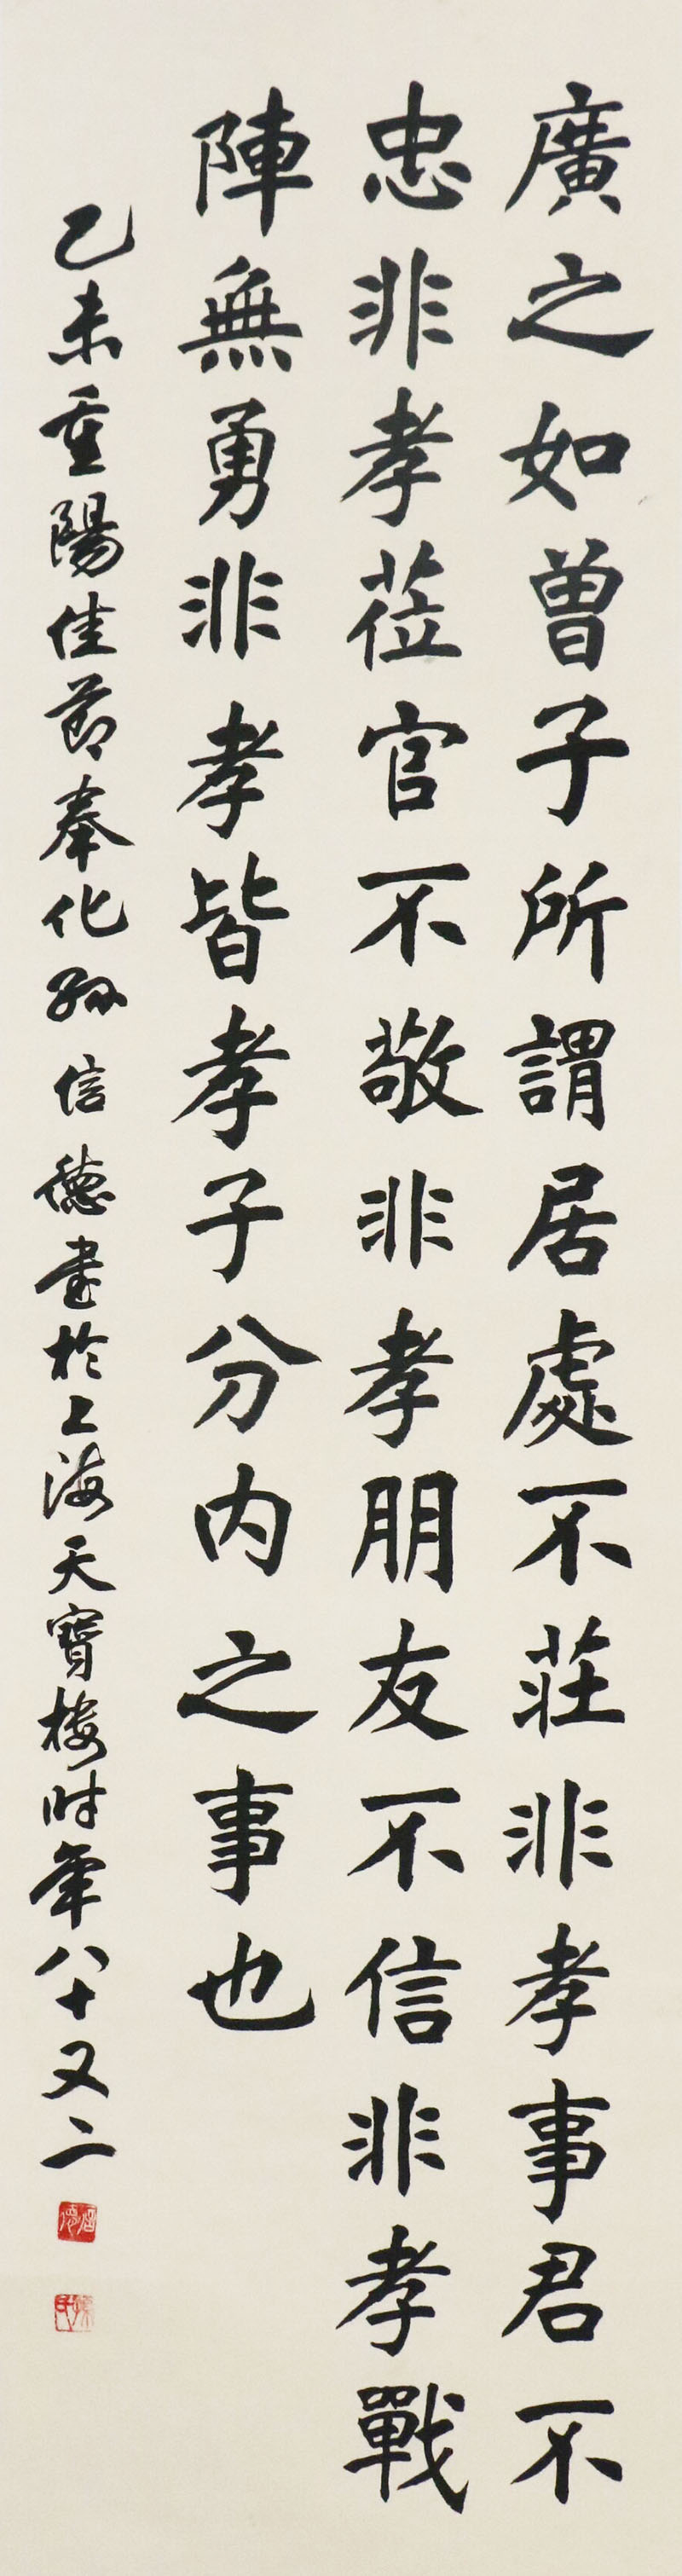 廣之如曾子所謂居處不莊非孝事君不
忠非孝莅官不敬非孝朋友不信非孝戰
陣無勇非孝皆孝子分内之事也
乙未重陽佳節奉化孫信德書於上海天寶樓時年八十又二
信德